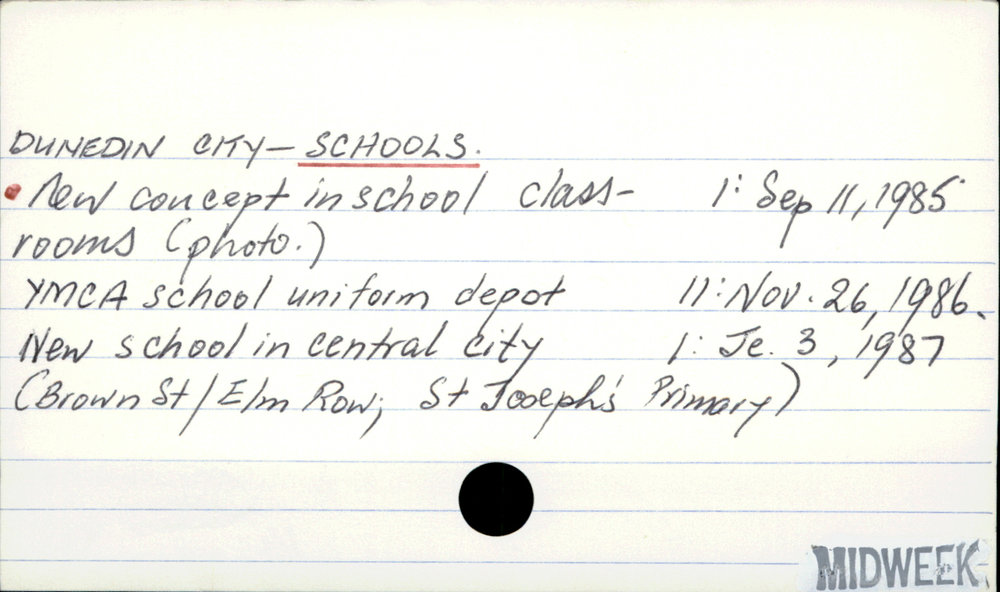 DUNEDIN CITY - SCHOOLS.
New concept in school class- 1: Sep 11, 1985
rooms (photo.)
YMCA school uniform depot 11: Nov. 26, 1986.
New school in central city 1: Je. 3, 1987
(Brown St / Elm Row; St Joseph's Primary)
MIDWEEK